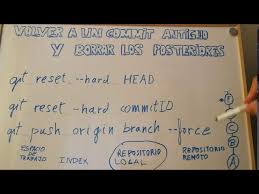 VOLVER A UN COMMIT ANTIGUO
Y BORRAR LOS POSTERIORES
git reset --hard HEAD
git reset --hard commitID
git push origin branch --force
ESPACIO DE TRABAJO
INDEX
REPOSITORIO LOCAL
REPOSITORIO REMOTO
C
B
A